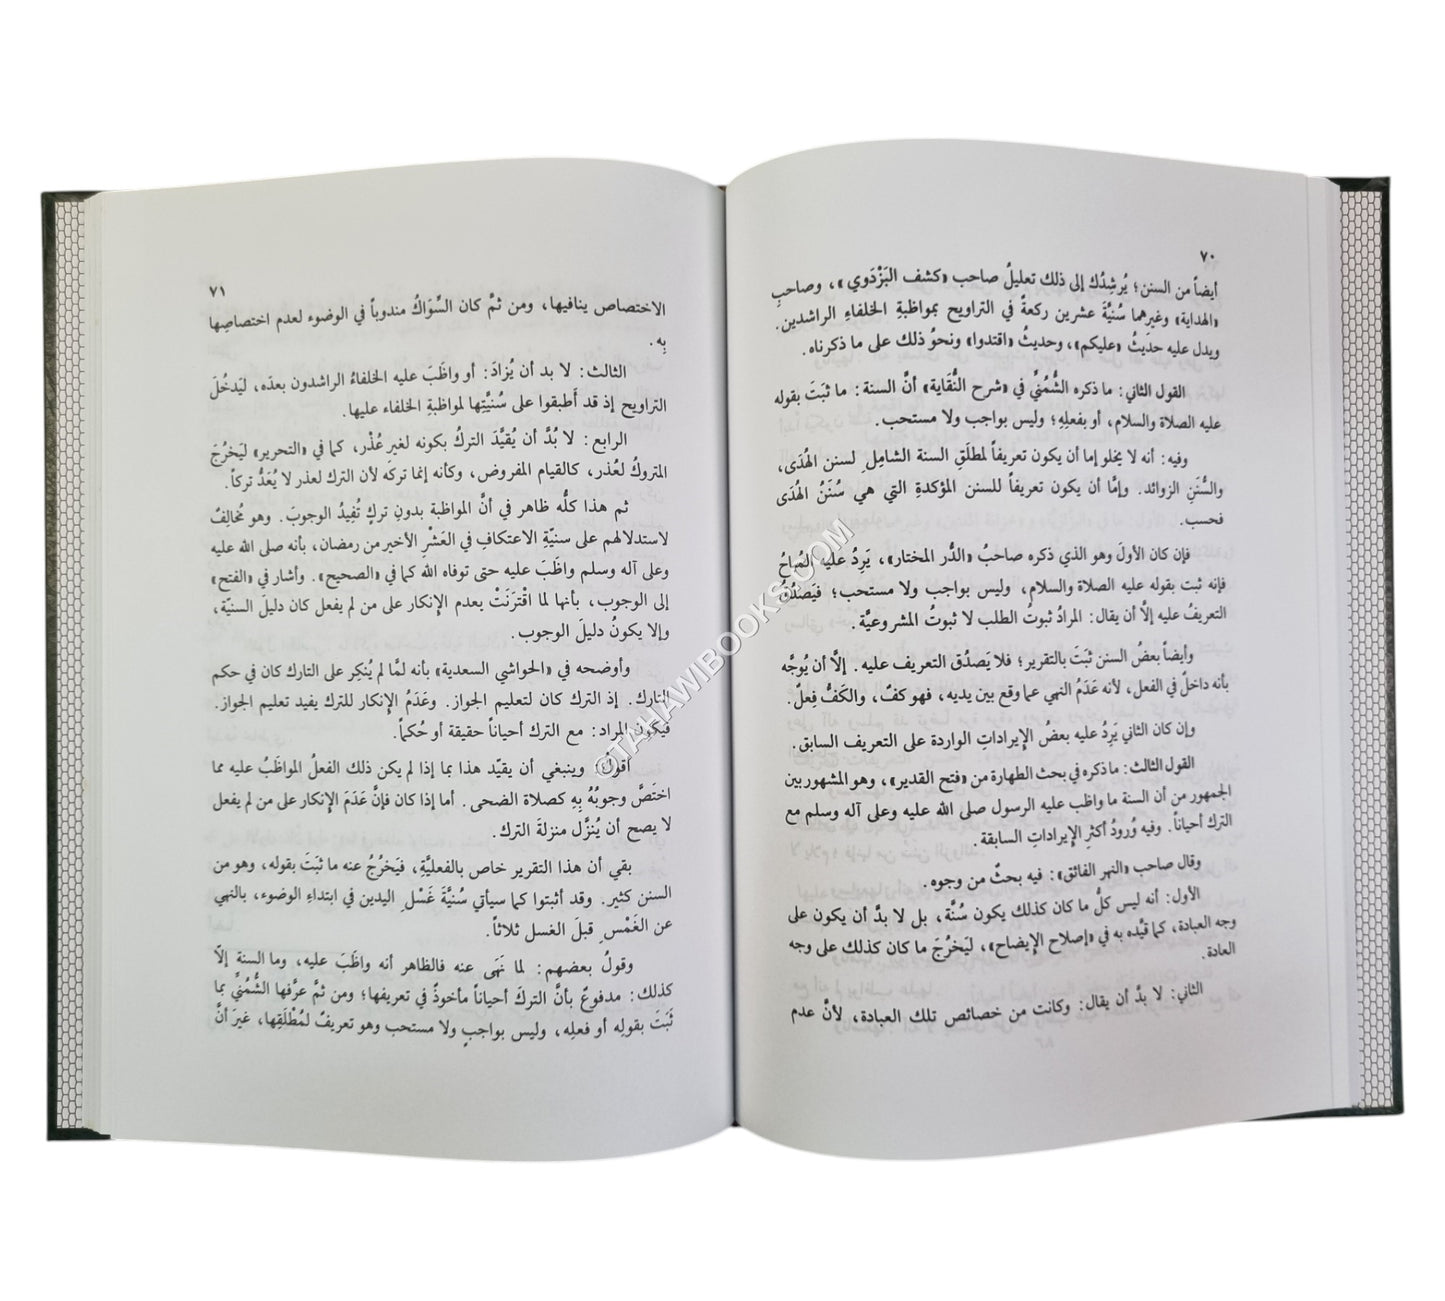 ٧٠
أيضاً من السنن؛ يُرشِدُك إلى ذلك تعليلُ صاحب «كشف البَزْدَوي»، وصاحبِ
«الهداية» وغيرهما سُنيَّةَ عشرين ركعةً في التراويح بمواظبةِ الخلفاءِ الراشدين.
ويدل عليه حديثُ «عليكم»، وحديثُ «اقتدوا» ونحوُ ذلك على ما ذكرناه.
القول الثاني: ما ذكره الشُّمُنِّي في «شرح النُّقَاية» أنَّ السنة: ما ثبَتَ بقوله
عليه الصلاة والسلام، أو بفعلِه؛ وليس بواجب ولا مستحب.
وفيه: أنه لا يخلو إما أن يكون تعريفاً لمطلَقِ السنة الشامِلِ لسنن الهُدَى،
والسُّنَنِ الزوائد. وإمَّا أن يكون تعريفاً للسنن المؤكدةِ التي هي سُنَنُ الهُدَى
فحسب.
فإن كان الأولَ وهو الذي ذكره صاحبُ «الدُّر المختار»، يَرِدُ عليه المُباحُ
فإنه ثبت بقوله عليه الصلاة والسلام، وليس بواجب ولا مستحب؛ فيَصدُقُ
التعريفُ عليه إلَّا أن يقال: المرادُ ثبوتُ الطلب لا ثبوتُ المشروعيَّة.
وأيضاً بعضُ السنن ثبَتَ بالتقرير؛ فلا يَصدُق التعريف عليه. إلَّا أن يُوجَّه
بأنه داخلٌ في الفعل، لأنه عَدَمُ النهي عما وقع بين يديه، فهو كفٌ، والكَفُّ فِعلٌ.
وإن كان الثاني يَرِدُ عليه بعضُ الإيراداتِ الواردة على التعريف السابق.
القول الثالث: ما ذكره في بحث الطهارة من «فتح القدير»، وهو المشهور بين
الجمهور من أن السنة ما واظب عليه الرسول صلى الله عليه وعلى آله وسلم مع
الترك أحياناً. وفيه وُرودُ أكثرِ الإيراداتِ السابقة.
وقال صاحب «النهر الفائق»: فيه بحثٌ من وجوه.
الأول: أنه ليس كلُّ ما كان كذلك يكون سُنَّة، بل لا بدَّ أن يكون على
وجه العبادة، كما قيَّده به في «إصلاح الإيضاح»، ليَخرُجَ ما كان كذلك على وجه
العادة.
الثاني: لا بدَّ أن يقال: وكانت من خصائص تلك العبادة، لأنَّ عدم
٧١
الاختصاص ينافيها، ومن ثمَّ كان السِّوَاكُ مندوباً في الوضوء لعدم اختصاصِها
بِه.
الثالث: لا بد أن يُزادَ: أو واظَبَ عليه الخلفاءُ الراشدون بعدَه، ليَدخُلَ
التراويح إذ قد أَطبقوا على سُنيَّتِها لمواظبةِ الخلفاء عليها.
الرابع: لا بُدَّ أن يُقيَّدَ التركُ بكونه لغيرِ عُذْر، كما في «التحرير» ليَخرُجَ
المتروكُ لعُذر، كالقيام المفروض، وكأنه إنما تركَه لأن الترك لعذر لا يُعَدُّ تركاً.
ثم هذا كلُّه ظاهر في أنَّ المواظبة بدونِ تركٍ تُفِيدُ الوجوبَ. وهو مُخالِفٌ
لاستدلالهم على سنيّةِ الاعتكافِ في العَشْرِ الأخير من رمضان، بأنه صلى الله عليه
وعلى آله وسلم واظَبَ عليه حتى توفاه الله كما في «الصحيح». وأشار في «الفتح»
إلى الوجوب، بأنها لما اقْتَرَنَتْ بعدم الإنكار على من لم يفعل كان دليلَ السنيّة،
وإلا يكونُ دليلَ الوجوب.
وأوضحه في «الحواشي السعدية» بأنه لمَّا لم يُنكِر على التارك كان في حكم
التارك. إذ الترك كان لتعليم الجواز. وعَدَمُ الإنكار للترك يفيد تعليم الجواز.
فيكون المراد: مع الترك أحياناً حقيقة أو حُكماً.
أقولُ: وينبغي أن يقيّد هذا بما إذا لم يكن ذلك الفعلُ المواظَبُ عليه مما
اختَصَّ وجوبُهُ بِهِ كصلاة الضحى. أما إذا كان فإنَّ عَدَمَ الإنكار على من لم يفعل
لا يصح أن يُنزَّل منزلةَ الترك.
بقي أن هذا التقرير خاص بالفعليَّةِ، فيَخرُجُ عنه ما ثبَتَ بقوله، وهو من
السنن كثير. وقد أثبتوا كما سيأتي سُنيَّةَ غَسْلِ اليدين في ابتداءِ الوضوء، بالنهي
عن الغَمْسِ قبلَ الغسل ثلاثاً.
وقولُ بعضهم: لما نَهَى عنه فالظاهر أنه واظَبَ عليه، وما السنة إلَّا
كذلك: مدفوعٌ بأنَّ التركَ أحياناً مأخوذٌ في تعريفها؛ ومن ثمَّ عرَّفها الشُّمُنِّي بما
ثَبَتَ بقولِه أو فعلِه، وليس بواجبٍ ولا مستحب وهو تعريفٌ لمُطْلَقِها، غيرَ أنَّ
©TAHAWIBOOKS.COM